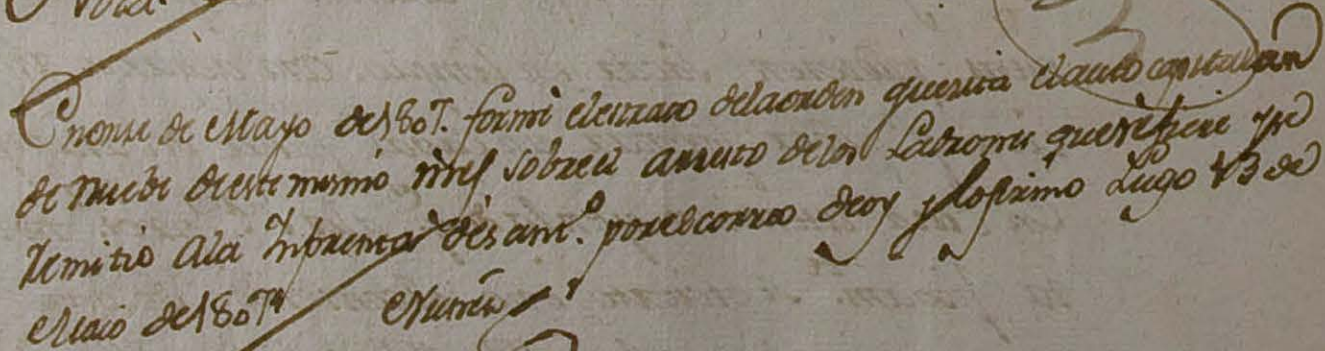 En onse de Mayo de 1807. formé el estrato dela orden que sita el auto capitular
de nuebe de este mismo mes sobre el arresto delos Ladrones que refiere y se
Remitio ala Ynprenta de S.ant.º por el correo de oy y lo firmo Lugo 13 de
Maio de 1807